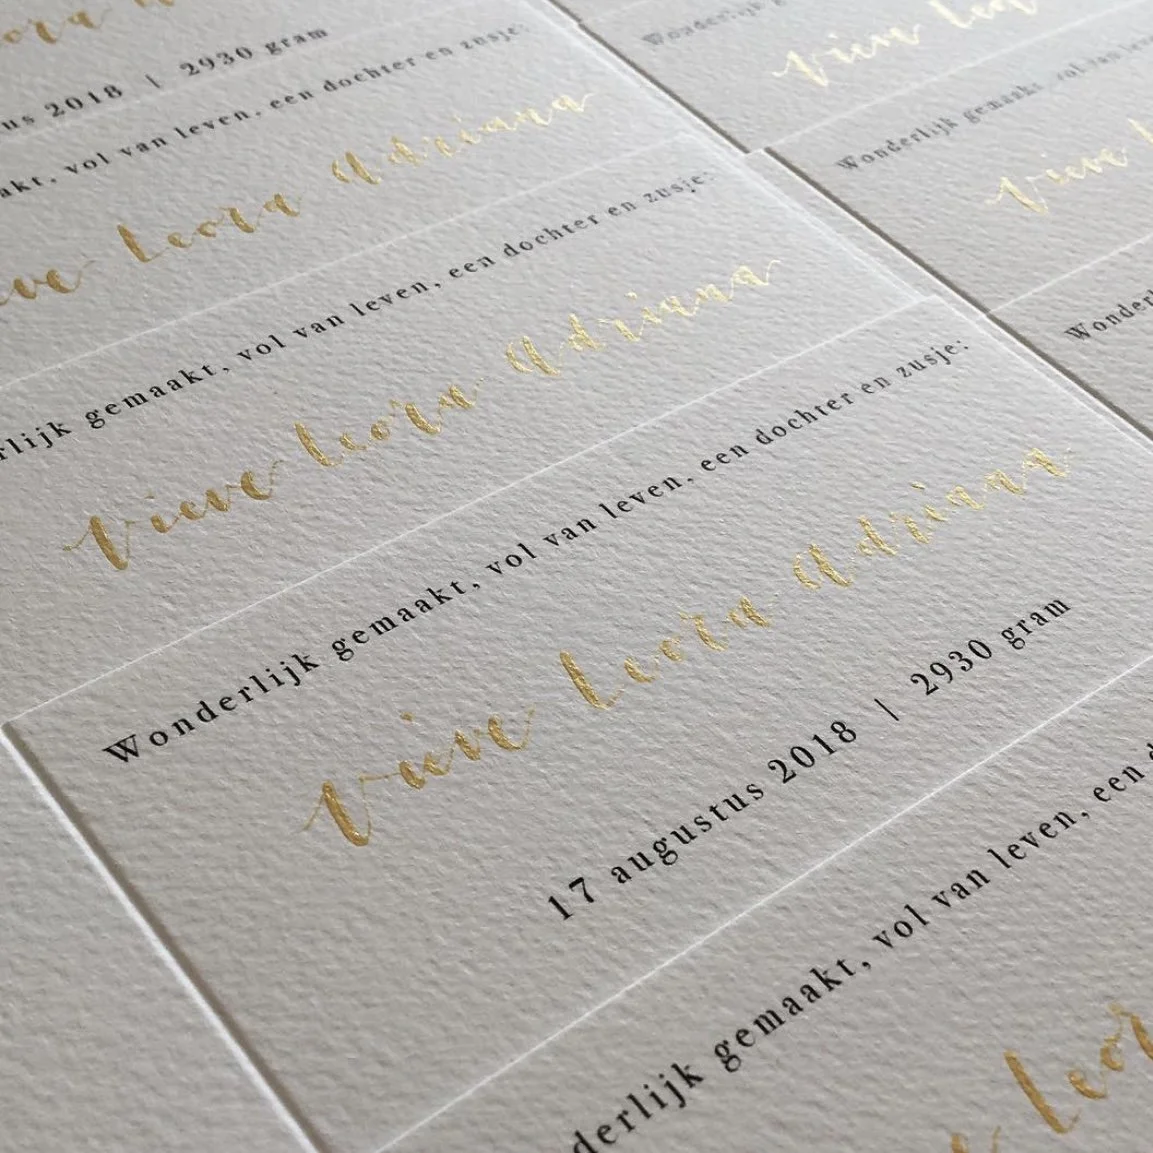 ora
us 2018 | 2930 gram
akt, vol van leven, een dochter en zusje:
eve Leora Adriana
rlijk gemaakt, vol van leven, een dochter en zusje:
Vieve Leora Adriana
Wonderlijk gemaakt, vol van leven, een dochter en zusje:
Vieve Leora Adriana
17 augustus 2018 | 2930 gram
derlijk gemaakt, vol van leven, een d
Leor
Wonderlijk g
Vieve Leo
Wonderlijk gemaakt, vol van leve
Vieve L
Wonderl